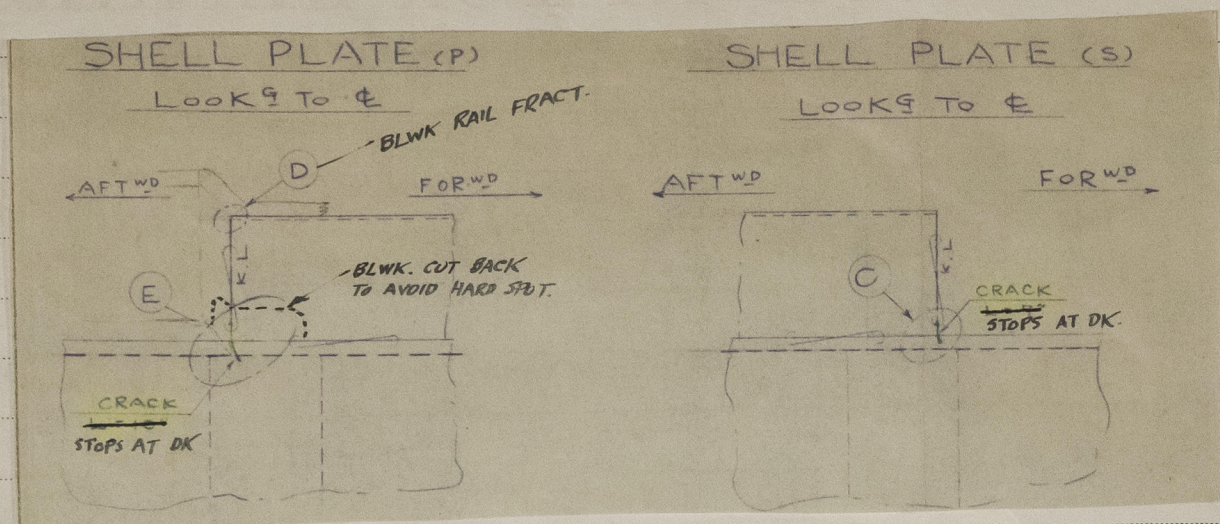 SHELL PLATE (P)
LOOKG TO ℄
BLWK RAIL FRACT.
D
AFTWD
FORWD
K.L
BLWK. CUT BACK
TO AVOID HARD SPOT.
E
CRACK
STOPS AT DK
SHELL PLATE (S)
LOOKG TO ℄
AFTWD
FORWD
K.L
C
CRACK
STOPS AT DK.